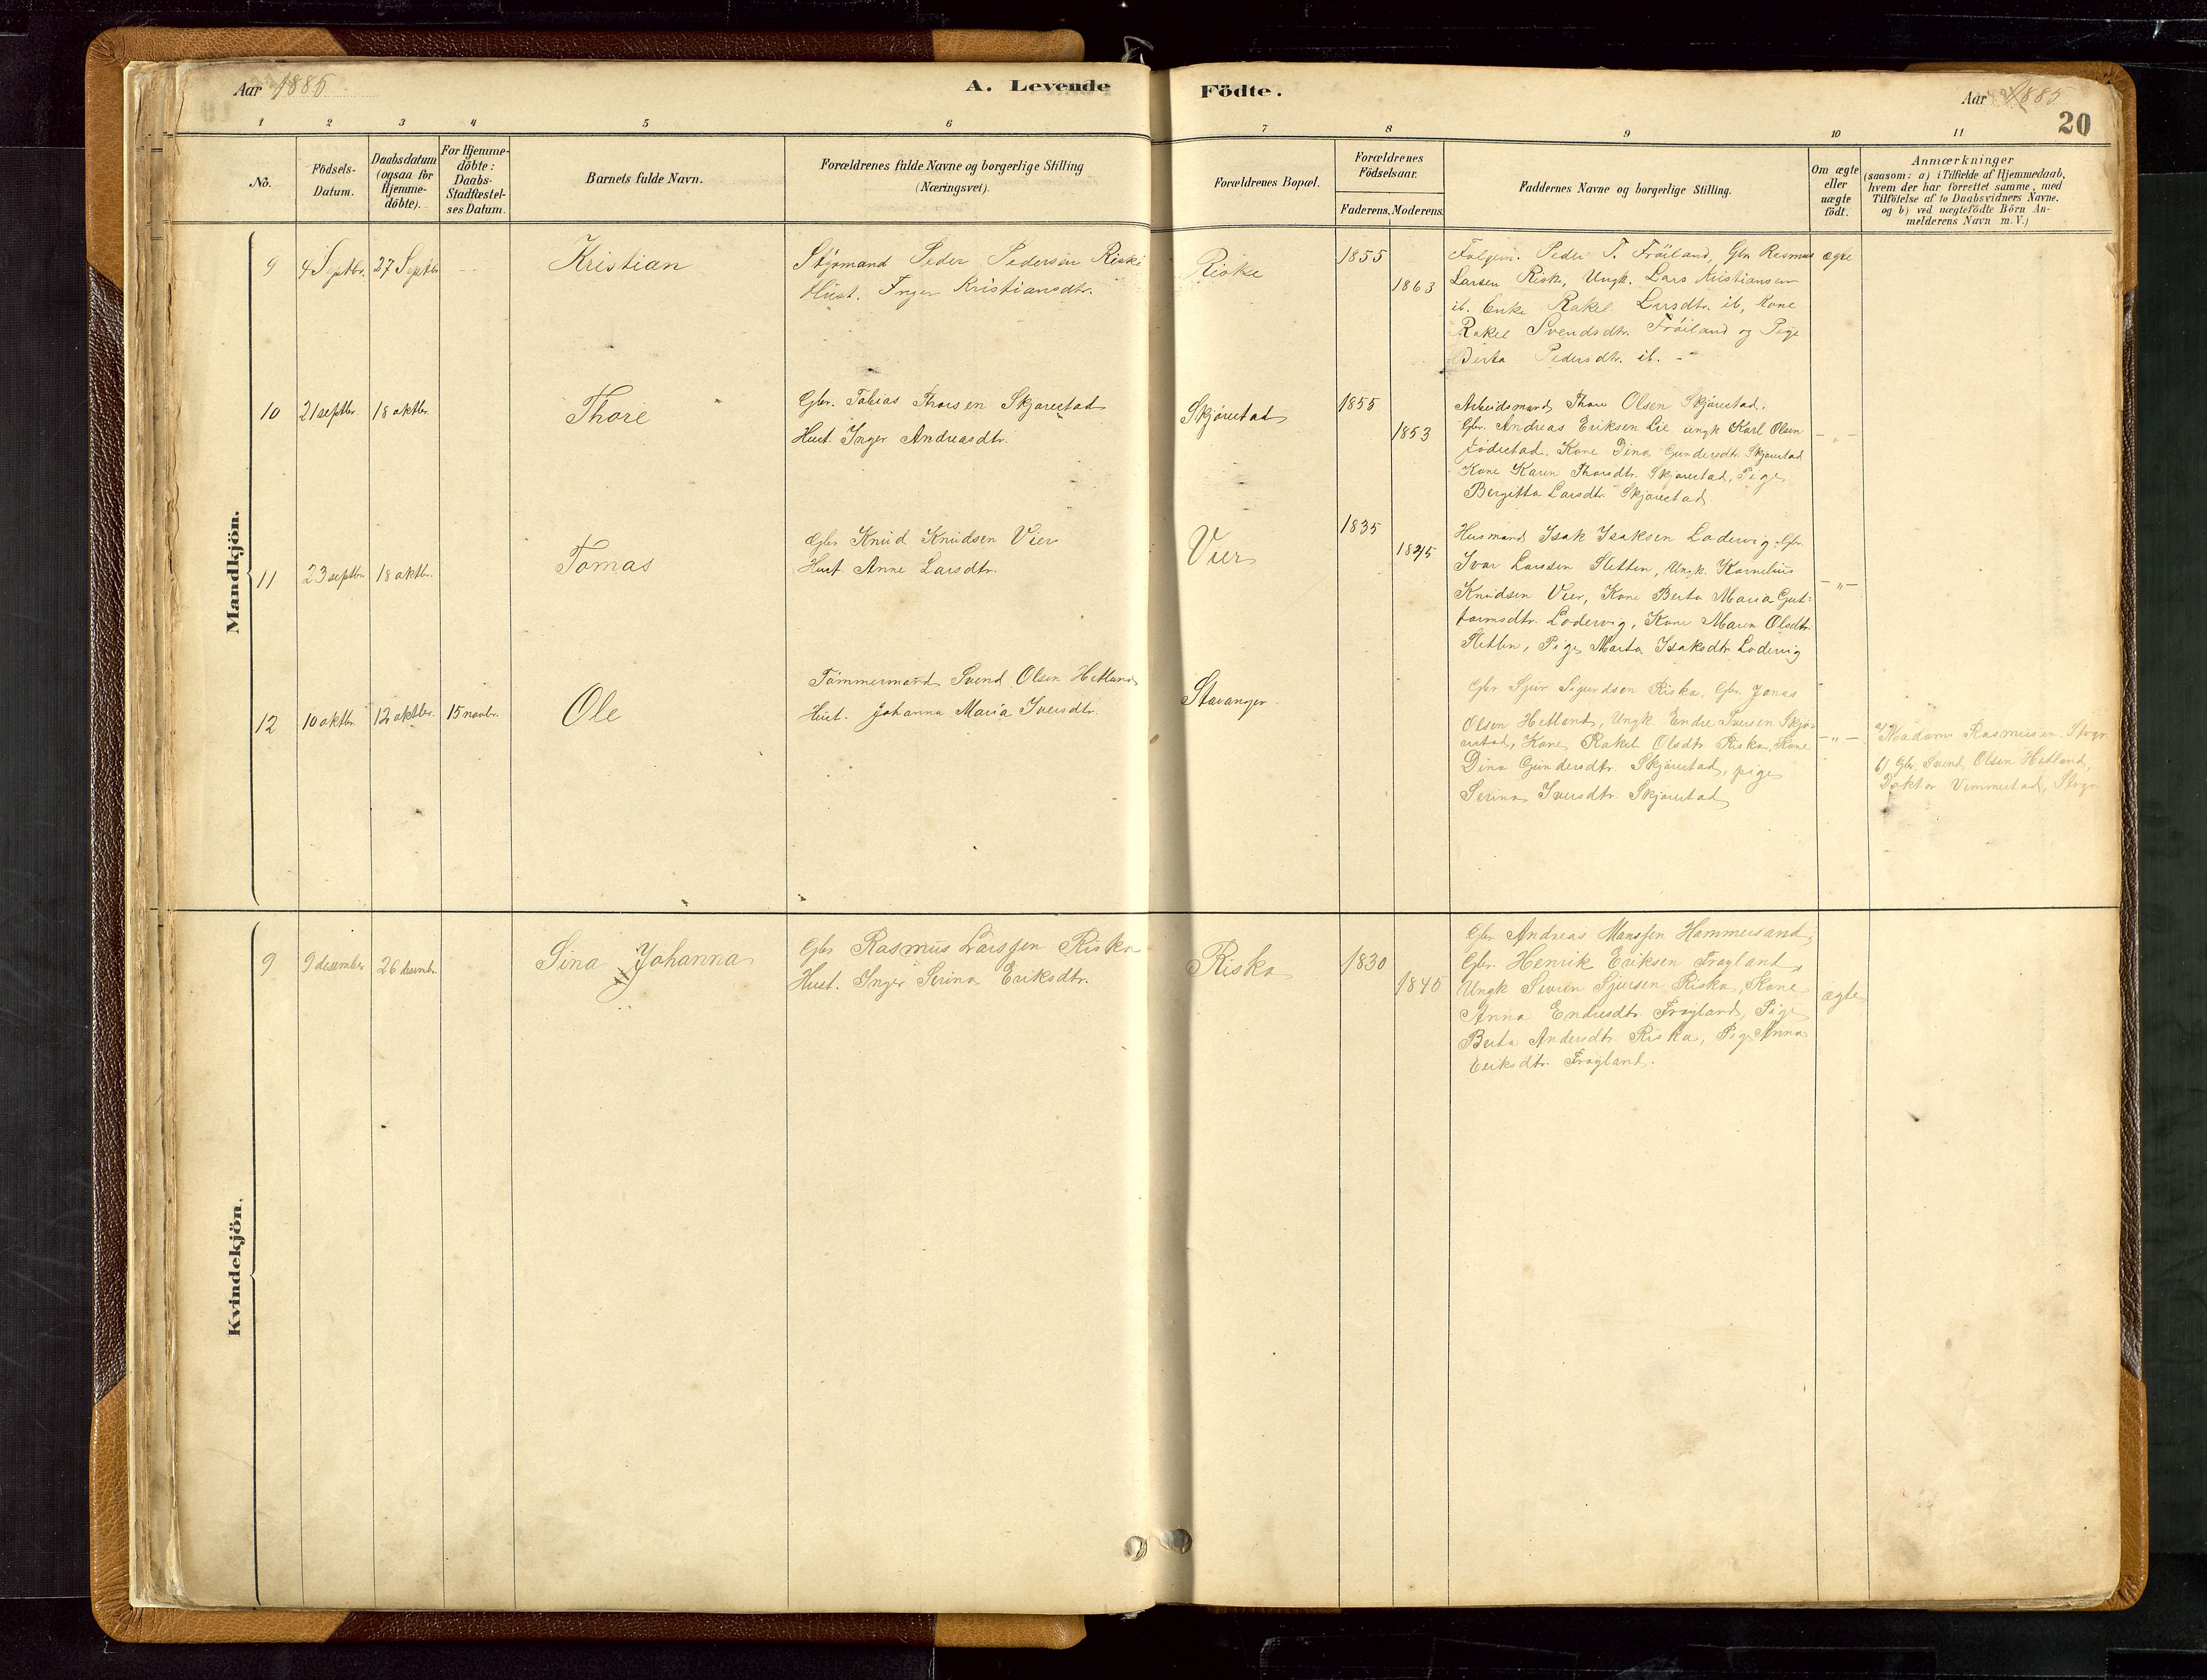 Aar 1885.
A. Levende
Födte.
Aar 1885
20
1
2
3
4
5
6
7
8
9
10
11
No.
Födsels-
Datum.
Daabsdatum
(ogsaa for
Hjemme-
döbte).
For Hjemme-
döbte:
Daabs-
Stadfæstel-
ses Datum.
Barnets fulde Navn.
Forældrenes fulde Navne og borgerlige Stilling
(Næringsvei).
Forældrenes Bopæl.
Forældrenes
Födselsaar.
Faderens.
Moderens.
Faddernes Navne og borgerlige Stilling.
Om ægte
eller
uægte
födt.
Anmærkninger
(saasom: a) i Tilfælde af Hjemmedaab,
hvem der har forrettet samme, med
Tilföielse af to Daabsvidners Navne.
og b) ved uægtefödte Börn An-
melderens Navn m.V.)
Mandkjön.
9
4 Septbr.
27 Septbr.
Kristian
Styrmand Peder Pedersen Riske
Hust. Inger Kristiansdtr.
Riske
1855
1863
Peder T. Fröiland, Gbr. Rasmus
Larsen Riske, Ungk. Lars Kristiansen
ib. Enke Rakel Larsdtr. ib, Kone
Rakel Svendsdtr. Fröiland og Pige
Berta Pedersdtr. ib. -
ægte
10
21 septbr.
18 oktbr.
Thore
Gbr. Tobias Thorsen Skjørestad
Hust. Inger Andreasdtr.
Skjørestad
1855
1853
Arbeidsmand Thore Olsen Skjørestad.
Gbr. Andreas Eriksen Lie ungk Karl Olsen
Kone Dina Gundersdtr. Skjørestad
Kone Karen Thorsdtr. Skjørestad, Pige
Bergitta Larsdtr. Skjørestad
- „ -
11
23 septbr.
18 oktbr.
Tomas
Gbr Knud Knudsen Vier
Hust. Anne Larsdtr.
Vier
1835
1845
Husmand Isak Isaksen Lodervig, Gbr.
Ivar Larssen Sletten, Ungk. Kornelius
Knudsen Vier, Kone Berta Maria Gut-
tormsdtr. Lodervig, Kone Maren Olsdtr.
Sletten, Pige Marta Isaksdtr. Lodervig
- „ -
12
10 oktbr.
12 oktbr.
15 novbr.
Ole
Tømmermand Svend Olsen Hetland
Hust. Johanna Maria Iversdtr.
Stavanger
Gbr Sjur Sigurdsen Riska, Gbr. Jonas
Olsen Hetland, Ungk. Endre Iversen Skjør-
estad, Kone Rakel Olsdtr. Riska, Kone
Dina Gundersdtr. Skjørestad, pige
Serina Iversdtr. Skjørestad
- „ -
a) Madam Rasmusen. Stvgr.
b) Gbr. Svend Olsen Hetland,
Doktor Vimmestad, Stvgr.
Kvindekjön.
9
9 desember
26 desembr.
Sina Johanna
Gbr Rasmus Larssen Riska
Hust. Inger Serina Eriksdtr.
Riska
1830
1840
Gbr. Andreas Monssen Hammersand,
Gbr. Henrik Eriksen Frøyland,
Ungk Sivren Sjursen Riska, Kone
Anna Endresdtr. Frøyland, Pige
Berta Andersdtr. Riska, Pige Anna
Eriksdtr. Frøyland.
ægte